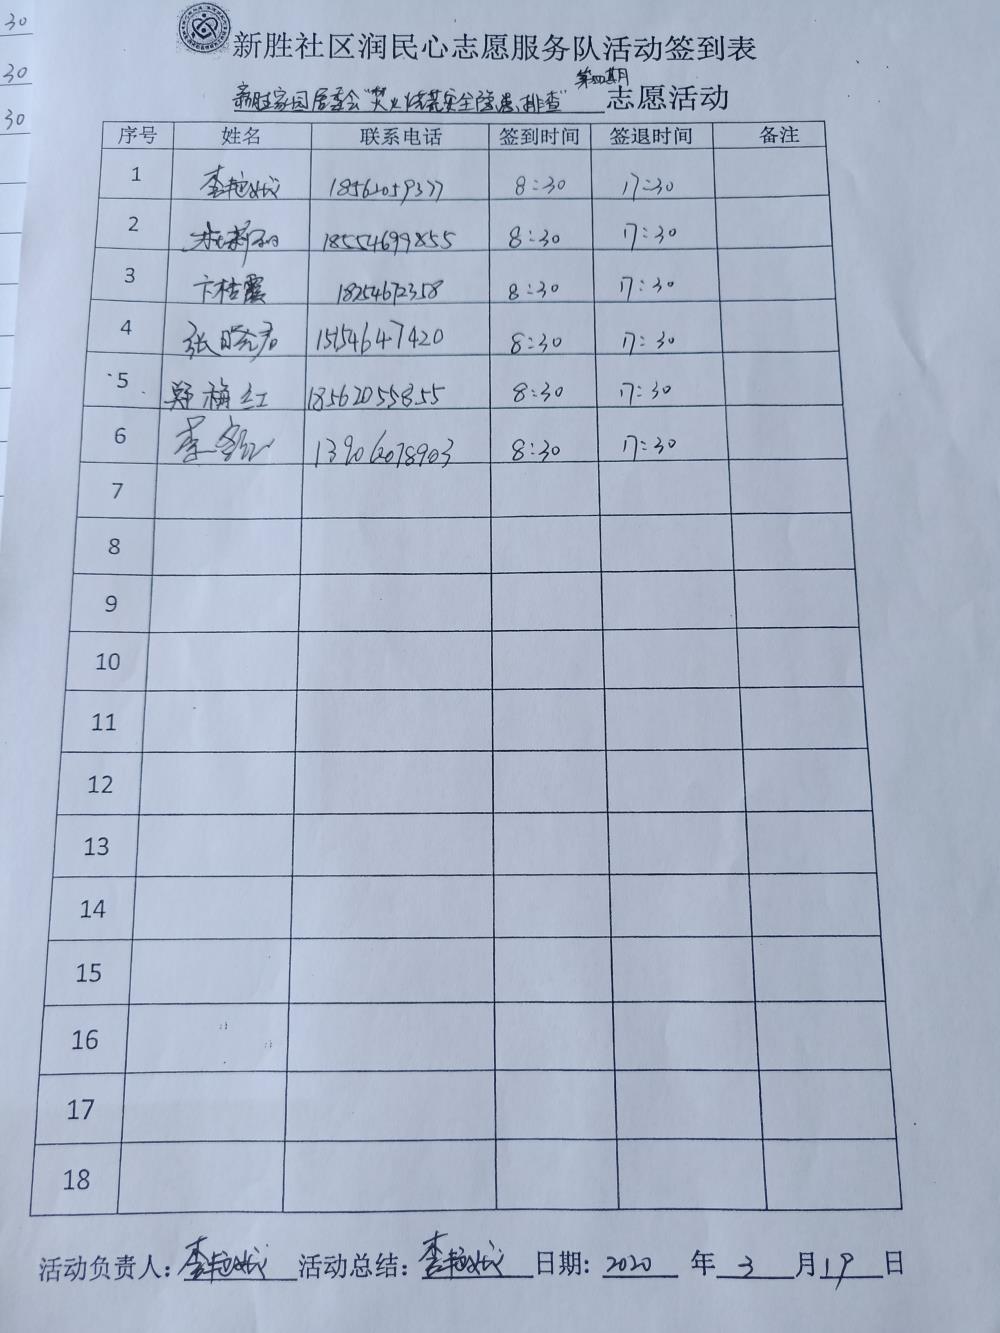 30
30
30
新胜社区润民心志愿服务队活动签到表
第四期
新胜家园居委会 安全隐患排查" 志愿活动
序号 姓名 联系电话 签到时间 签退时间 备注
1 李艳斌 18562059377 8:30 17:30
2 18554699855 8:30 17:30
3 卞桂霞 18254672358 8:30 17:30
4 张晓君 15154647420 8:30 17:30
5 郑梅红 18562055855 8:30 17:30
6 李 13906078903 8:30 17:30
7
8
9
10
11
12
13
14
15
16
17
18
活动负责人: 李艳斌 活动总结: 李艳斌 日期: 2020 年 3 月 19 日